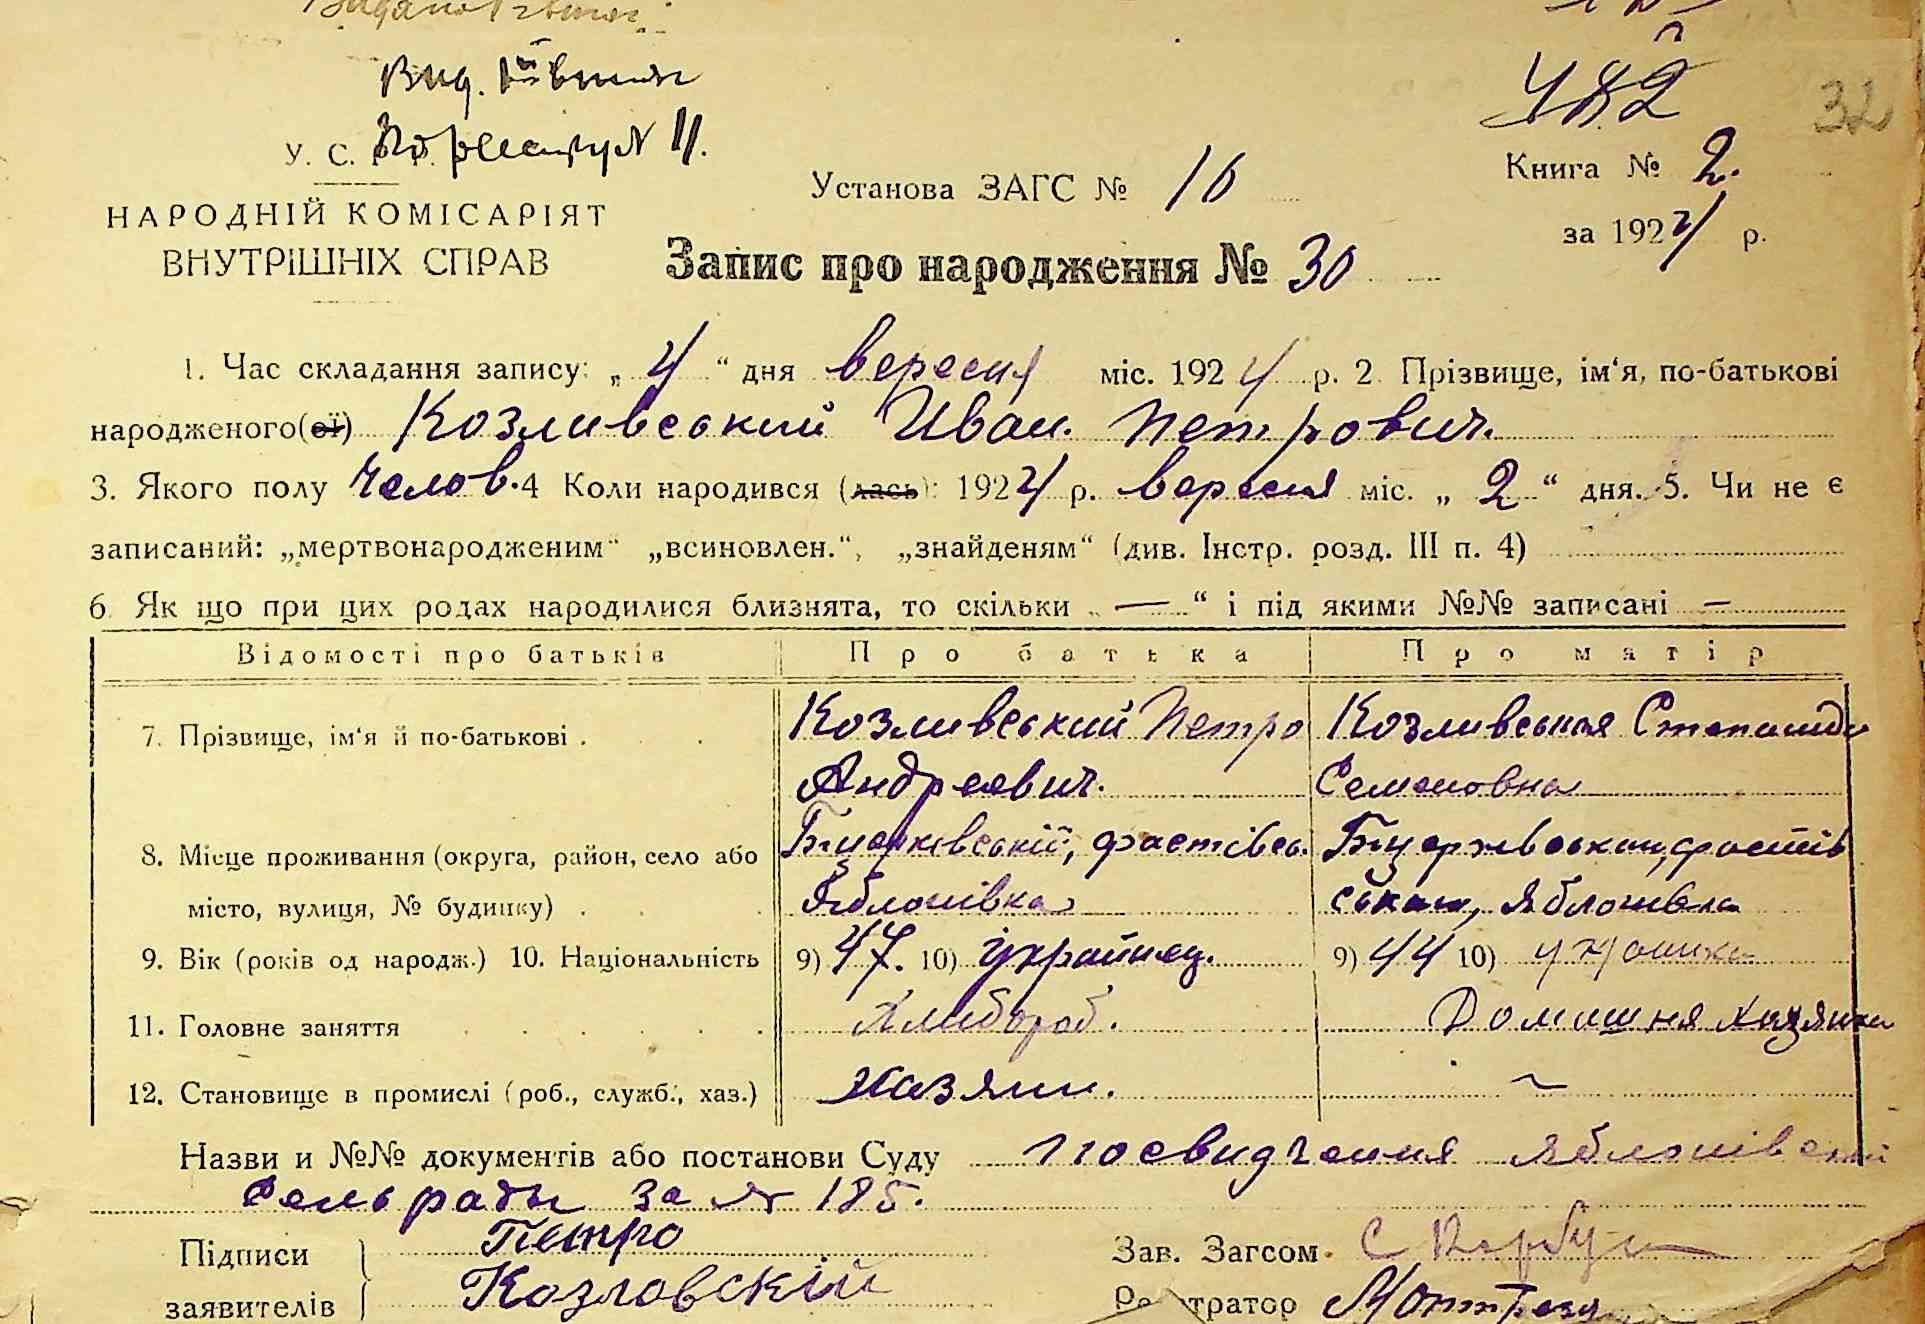 Вид.
У. С. По реєстру № 11.
НАРОДНІЙ КОМІСАРІЯТ
ВНУТРІШНІХ СПРАВ
Установа ЗАГС № 16
482
32
Книга № 2.
за 1924 р.
Запис про народження № 30
1. Час складання запису: „ 4 “ дня вересня міс. 1924 р. 2. Прізвище, ім‘я, по-батькові
народженого(ої) Козливський Иван. Петрович.
3. Якого полу Челов. 4 Коли народився (лась): 1924 р. вересня міс. „ 2 “ дня. 5. Чи не є
записаний: „мертвонародженим“ „всиновлен.“, „знайденям“ (див. Інстр. розд. III п. 4)
6 Як що при цих родах народилися близнята, то скільки „ — “ і під якими №№ записані —
Відомості про батьків Про батька Про матір
7. Прізвище, ім‘я й по-батькові . Козливський Петро Андреевич. Козливськая Степанида Семеновна
8. Місце проживання (округа, район, село або
місто, вулиця, № будинку) . Яблонівка Яблонівка
9. Вік (років од народж.) 10. Національність 9) 47. 10) українец. 9) 44 10)
11. Головне заняття Хлибороб. Домашня хазяйка
12. Становище в промислі (роб., служб., хаз.) Хазяин. ~
Назви и №№ документів або постанови Суду посвидчення Яблонівской
Сельради за № 185.
Підписи заявителів Петро
Козловскій
Зав. Загсом
Реєстратор